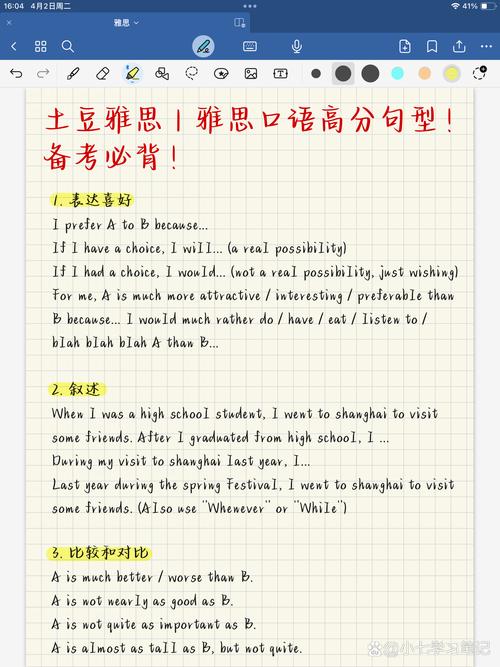 16:04 4月2日周二
41%
雅思
土豆雅思 | 雅思口语高分句型!
备考必背!
1. 表达喜好
I prefer A to B because...
If I have a choice, I will... (a real possibility)
If I had a choice, I would... (not a real possibility, just wishing)
For me, A is much more attractive / interesting / preferable than
B because... I would much rather do / have / eat / listen to /
blah blah blah A than B...
2. 叙述
When I was a high school student, I went to shanghai to visit
some friends. After I graduated from high school, I ...
During my visit to shanghai last year, I...
Last year during the spring Festival, I went to shanghai to visit
some friends. (Also use "Whenever" or "While")
3. 比较和对比
A is much better / worse than B.
A is not nearly as good as B.
A is not quite as important as B.
A is almost as tall as B, but not quite.
小七学习笔记